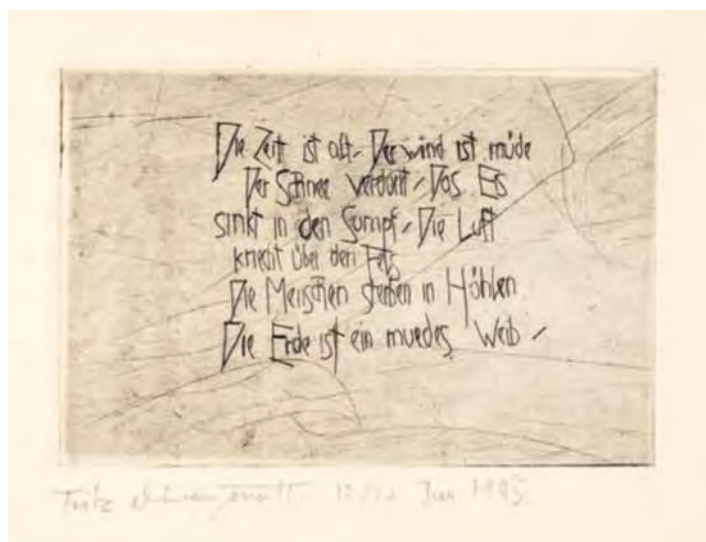 Die Zeit ist alt / Der wind ist müde
Der Schnee verdünt / Das Eis
sinkt in den Sumpf / Die Luft
kriecht über den Fels
Die Menschen sterben in Höhlen
Die Erde ist ein muedes Weib /
Fritz Jun 1995